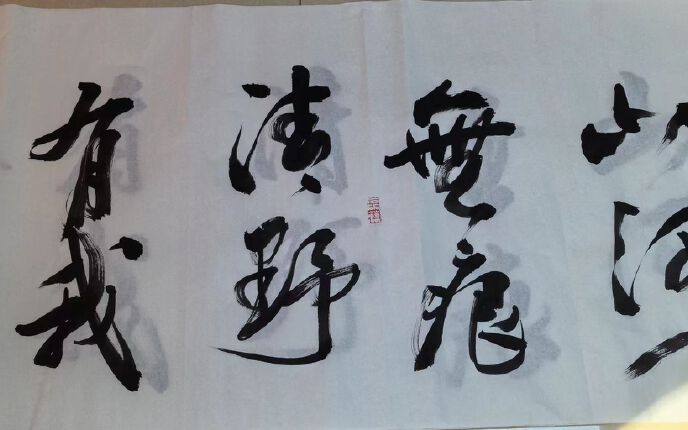 山河
無痕
清野
有我